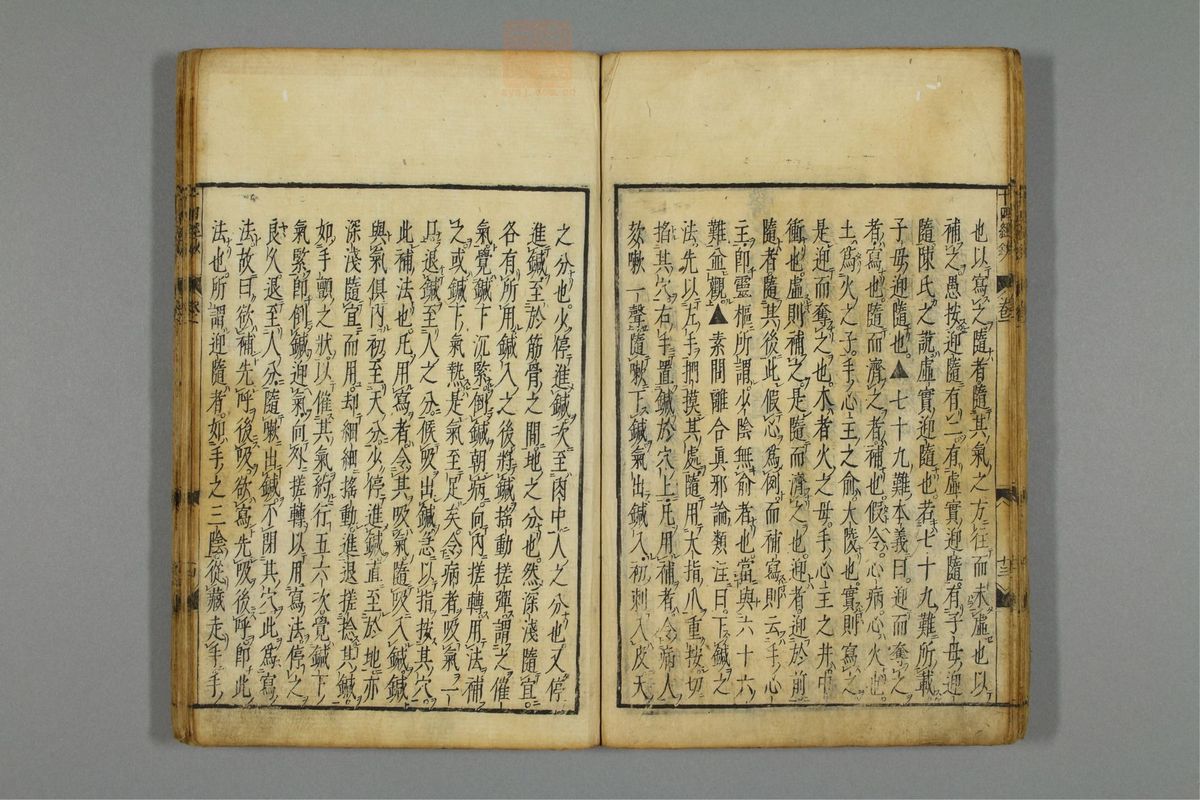 也以寫之隨者隨其氣之方往而未虛也以
補之愚按迎隨有二有虛實迎隨有子母迎
隨陳氏之說虛實迎隨也若七十九難所載
子母迎隨也▲七十九難本義曰迎而奪之
者寫也隨而濟之者補也假令心病心火也
土爲火之子手心主之俞大陵也實則寫之
是迎而奪之也木者火之母手心主之井中
衝也虛則補之是隨而濟之也迎者迎於前
隨者隨其後此假心爲例而補寫則云手心
主即靈樞所謂少陰無俞者也當與六十六
難並觀▲素問離合眞邪論類注曰下鍼之
法先以左手捫摸其處隨用大指爪重按切
掐其穴右手置鍼於穴上凡補者令病人
欬嗽一聲隨嗽下鍼氣出鍼入初刺入皮天
之分也少停進鍼次至肉中人之分也又停
進鍼至於筋骨之間地之分也然深淺隨宜
各有所用鍼入之後將鍼搖動搓彈謂之催
氣覺鍼下沉緊倒鍼朝病向內搓轉用法補
之或鍼下氣熱是氣至足矣令病者吸氣一
口退鍼至人之分候吸出鍼急以指按其穴
此補法也凡用寫者令其吸氣隨吸入鍼鍼
與氣俱內初至天分少停進鍼直至於地亦
深淺隨宜而用却細細搖動進退搓捻其鍼
如手顫之狀以催其氣約行五六次覺鍼下
氣緊即倒鍼迎氣向外搓轉以用寫法停之
良久退至人分隨嗽出鍼不閉其穴此爲寫
法故曰欲補先呼後吸欲寫先吸後呼即此
法也所謂迎隨者如手之三陰從藏走手手
十四經
卷一
十三